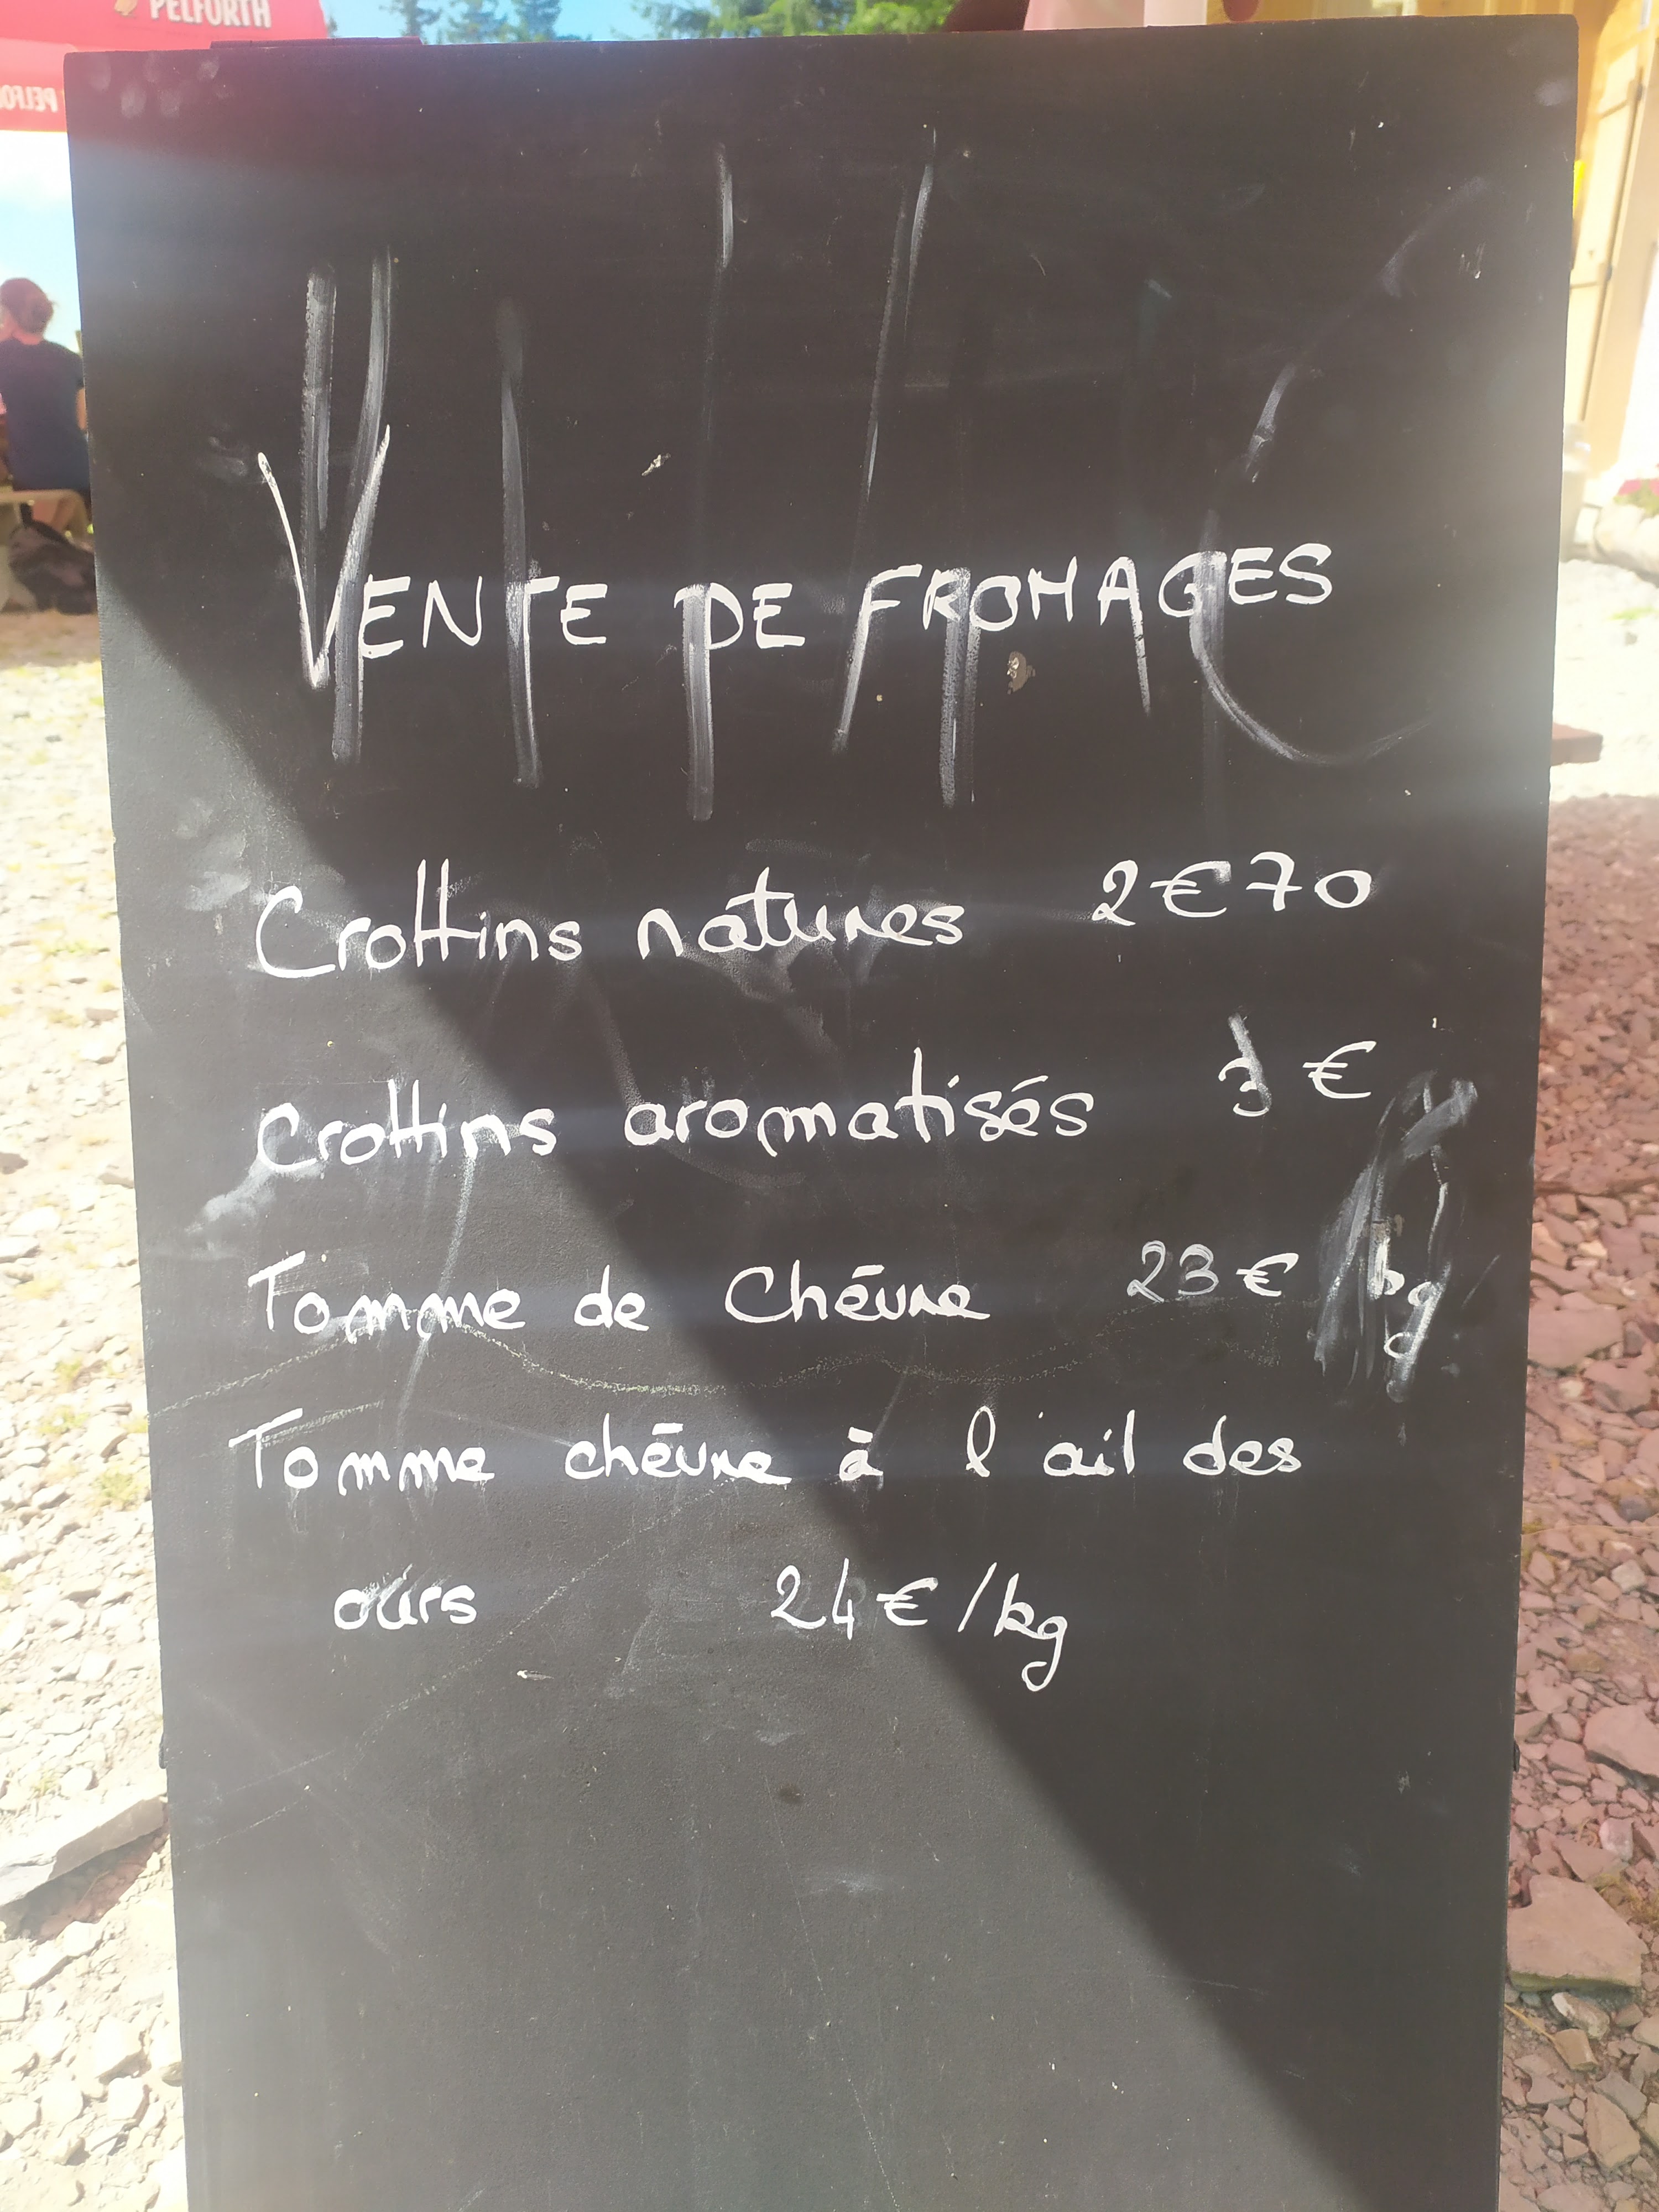 PELFORTH
VENTE DE FROMAGES
Crottins natures 2€70
Crottins aromatisés 3€
Tomme de Chèvre 23€ /kg
Tomme chèvre à l'ail des
ours 24€/kg